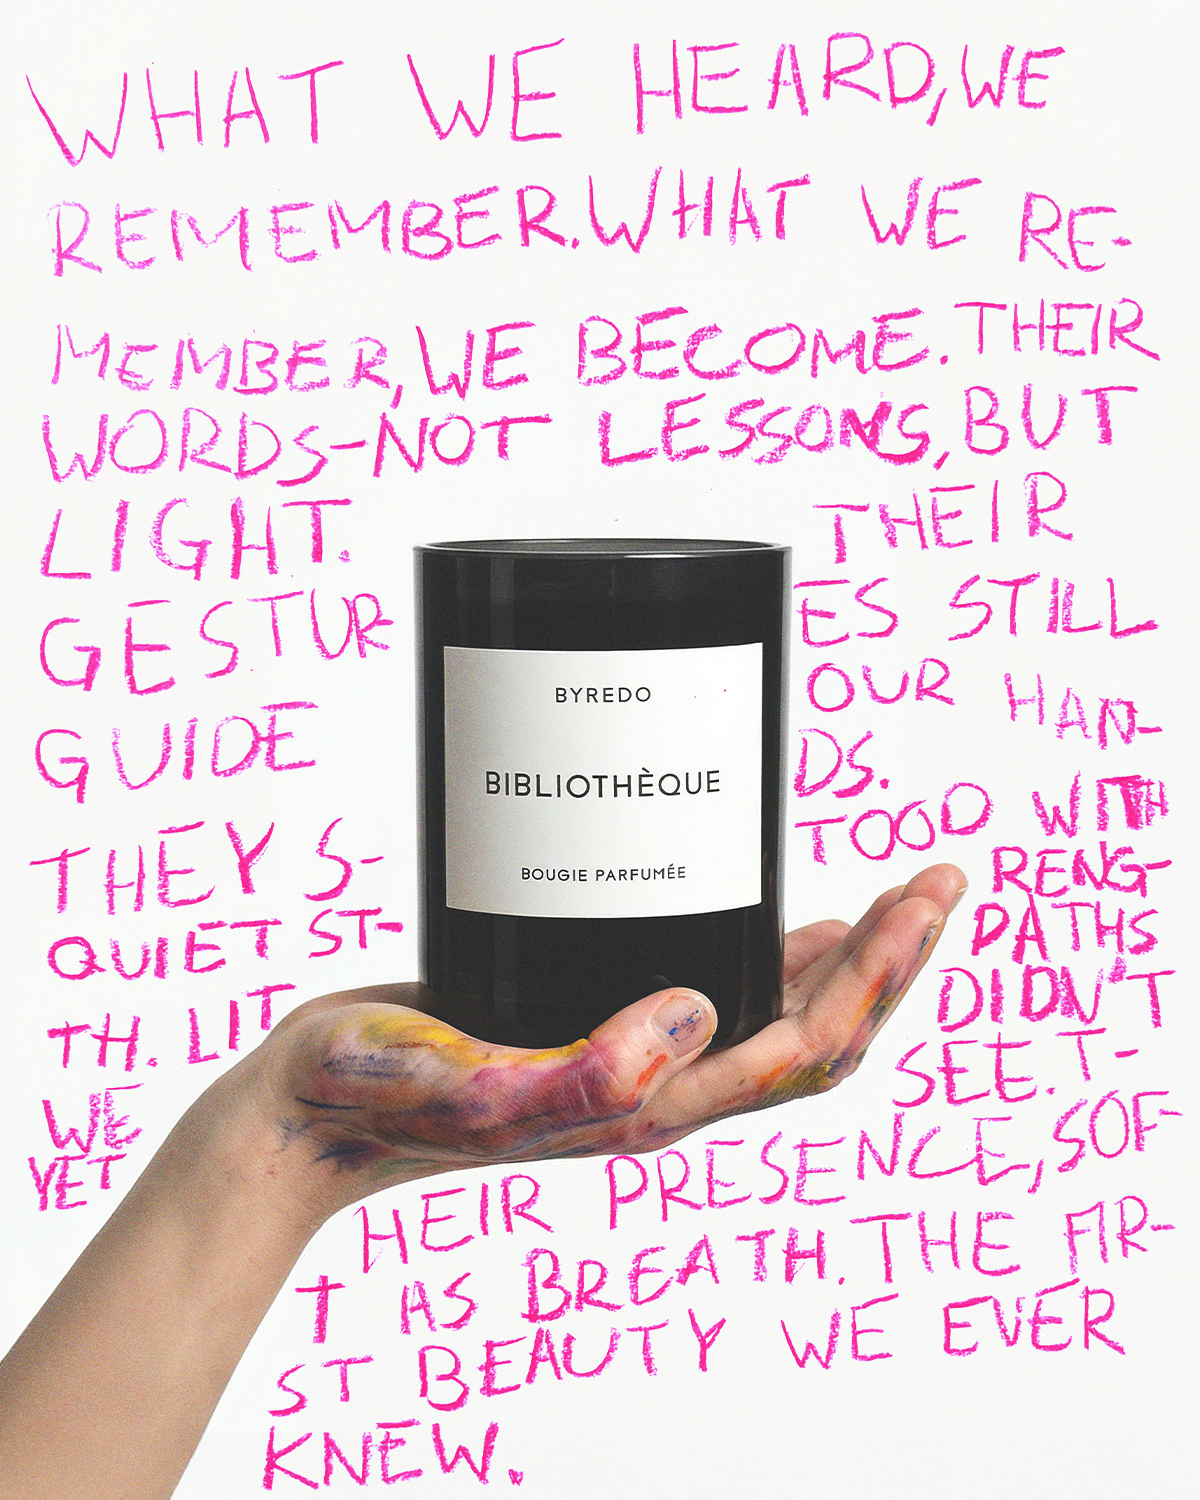 WHAT WE HEARD, WE
REMEMBER. WHAT WE RE-
MEMBER, WE BECOME. THEIR
WORDS-NOT LESSONS, BUT
LIGHT. THEIR
GESTUR ES STILL
GUIDE OUR HAN-
DS.
THEY S- TOOD WITH
QUIET ST- RENG-
TH. LIT PATHS
WE DIDN'T
YET SEE. T-
HEIR PRESENCE, SOF-
T AS BREATH. THE FIR-
ST BEAUTY WE EVER
KNEW.
BYREDO
BIBLIOTHÈQUE
BOUGIE PARFUMÉE